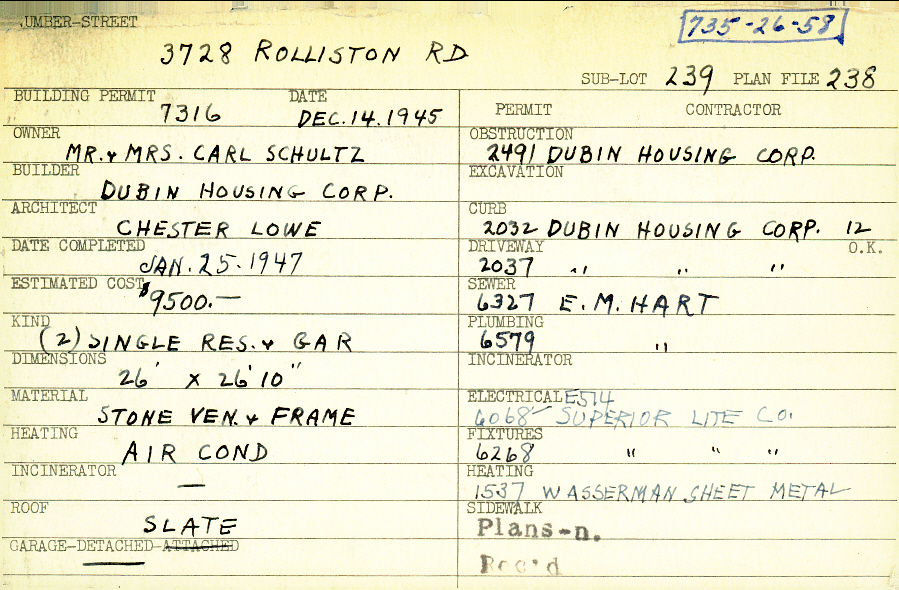 UMBER-STREET
735-26-58
3728 ROLLISTON RD
SUB-LOT 239 PLAN FILE 238
BUILDING PERMIT DATE
7316 DEC.14.1945
OWNER
MR. & MRS. CARL SCHULTZ
BUILDER
DUBIN HOUSING CORP.
ARCHITECT
CHESTER LOWE
DATE COMPLETED
JAN. 25. 1947
ESTIMATED COST
$9500.—
KIND
(2) SINGLE RES. & GAR
DIMENSIONS
26' X 26'10"
MATERIAL
STONE VEN. & FRAME
HEATING
AIR COND
INCINERATOR
—
ROOF
SLATE
GARAGE-DETACHED-ATTACHED
PERMIT CONTRACTOR
OBSTRUCTION
2491 DUBIN HOUSING CORP.
EXCAVATION
CURB
2032 DUBIN HOUSING CORP. 12
DRIVEWAY O.K.
2037 " " "
SEWER
6327 E. M. HART
PLUMBING
6579 "
INCINERATOR
ELECTRICAL E514
6068 SUPERIOR LITE CO.
FIXTURES
6268 " " "
HEATING
1537 WASSERMAN SHEET METAL
SIDEWALK
Plans-n.
Rec'd